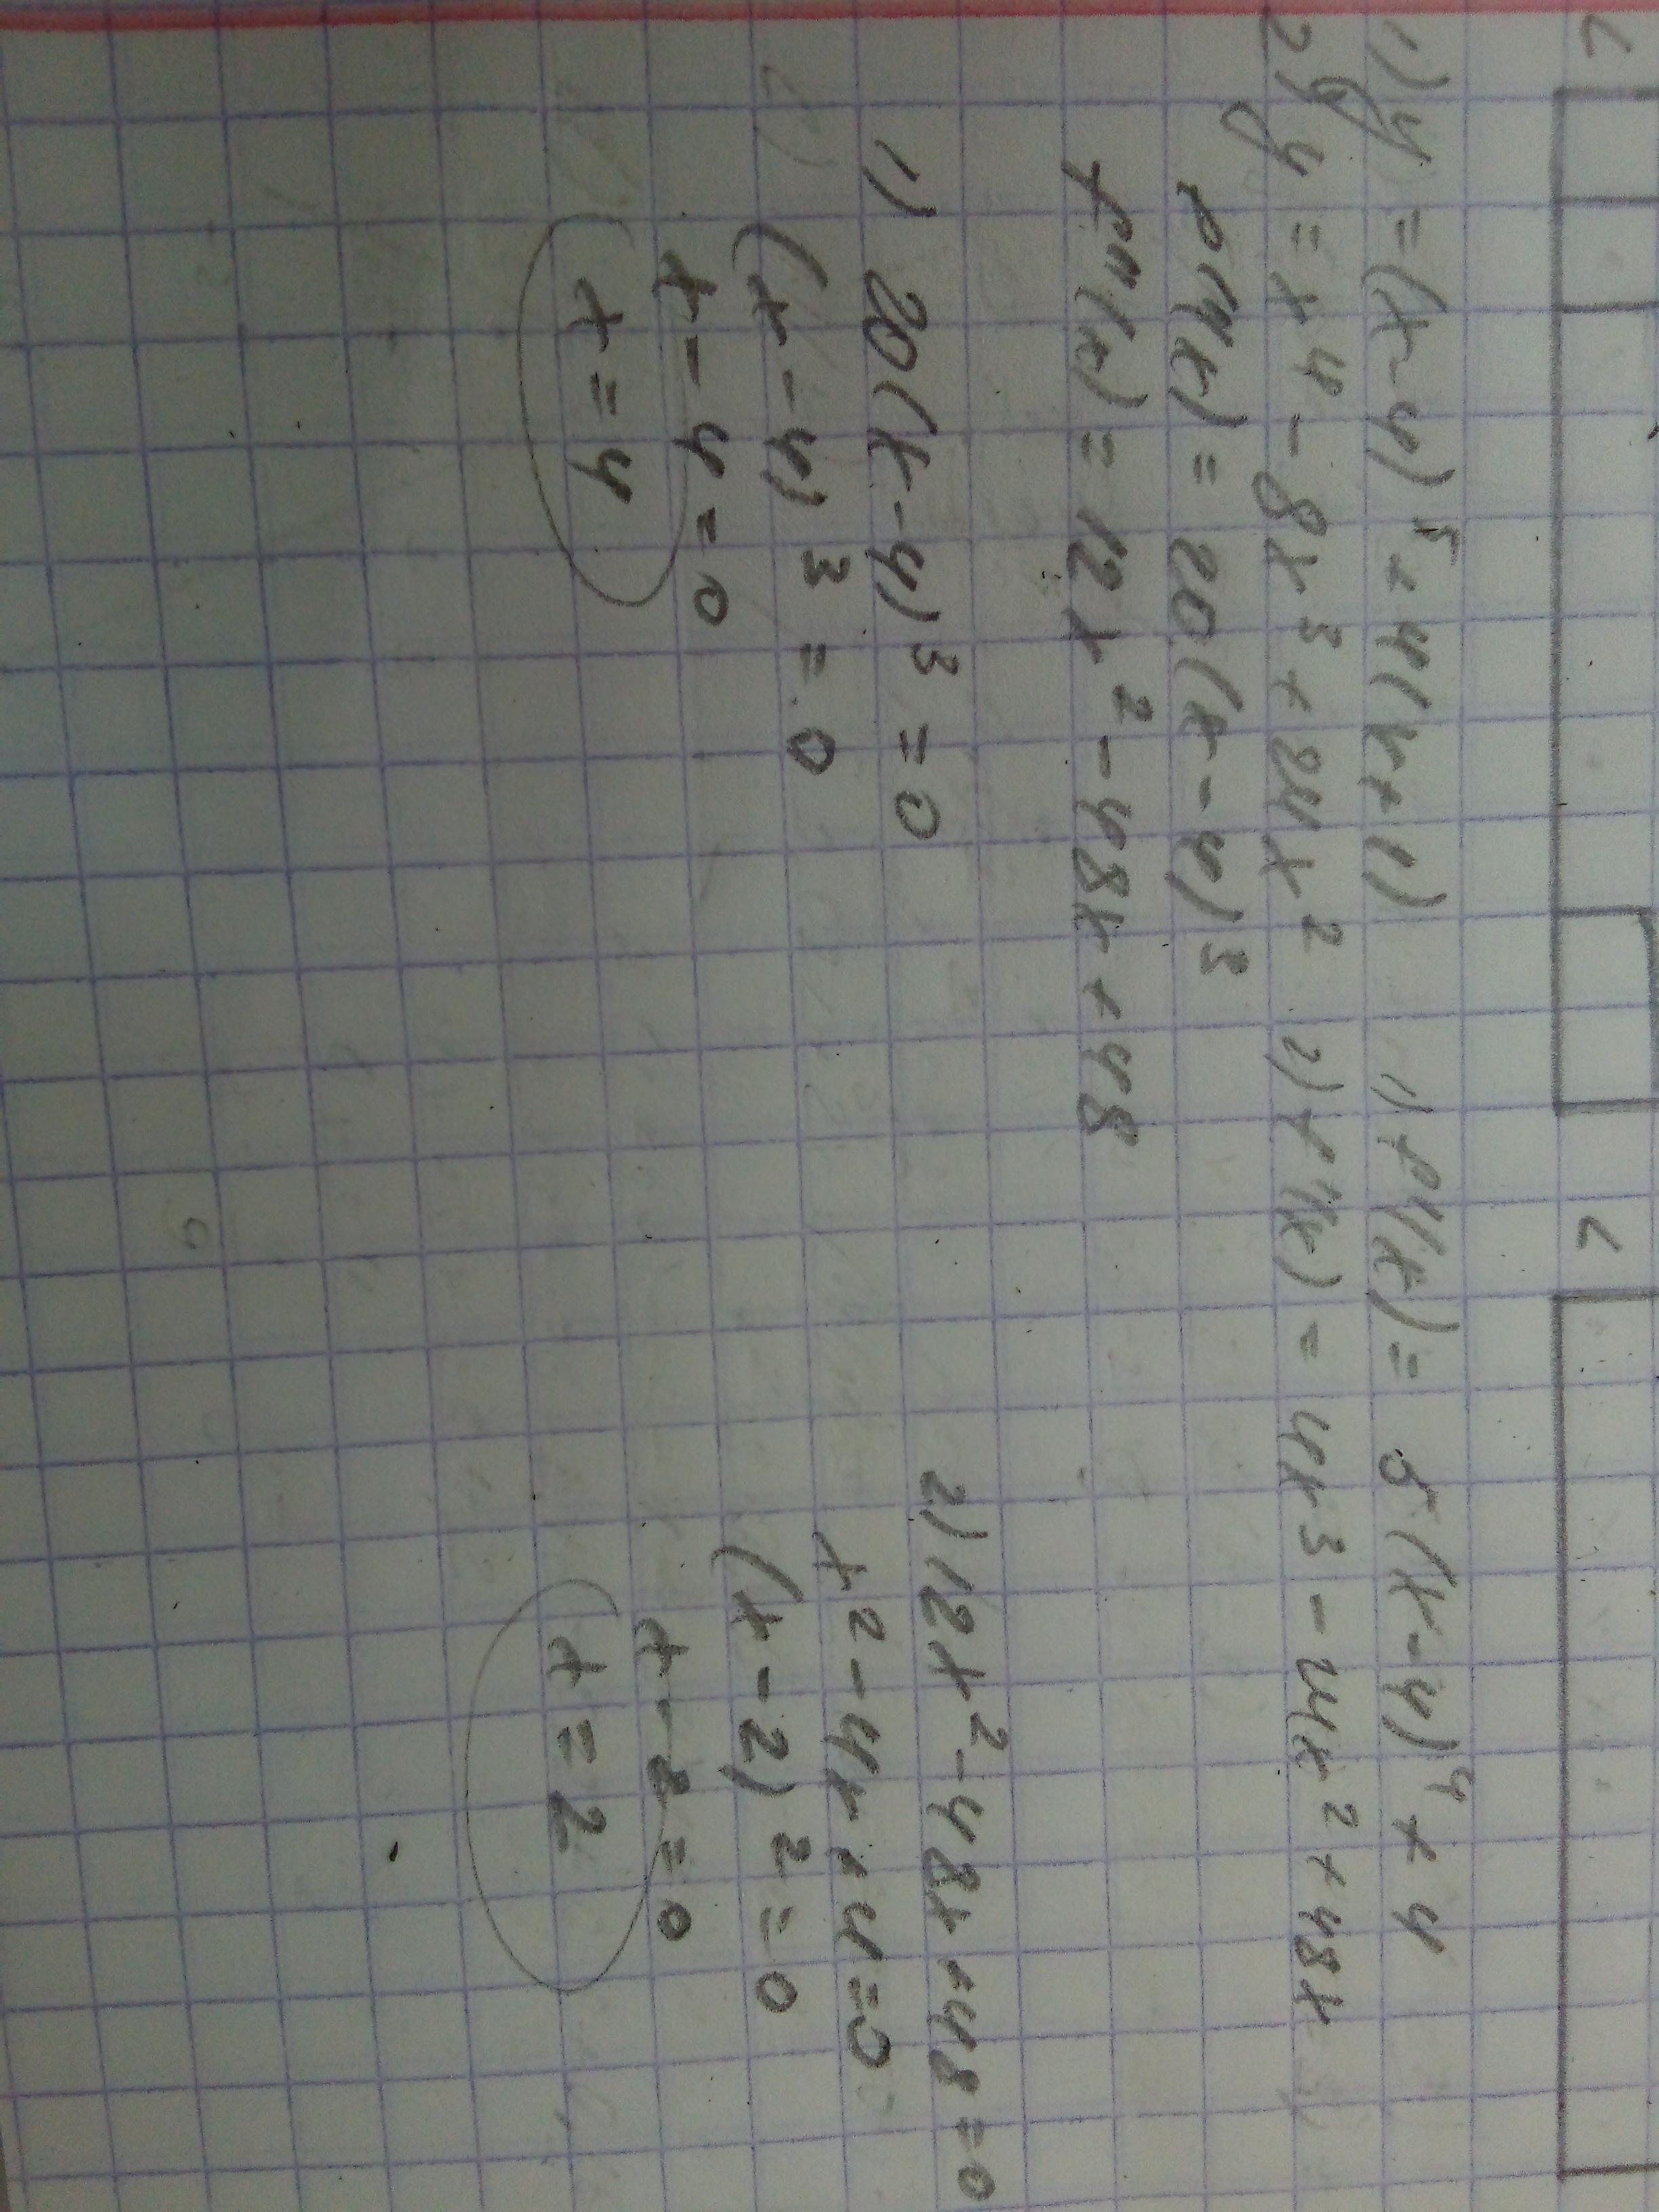 1) y = (x-4)⁵ + 4(x+1)   1) f'(x) = 5(x-4)⁴ + 4
2) y = x⁴ - 8x³ + 24x²   2) f'(x) = 4x³ - 24x² + 48x
f''(x) = 20(x-4)³
f''(x) = 12x² - 48x + 48
1) 20(x-4)³ = 0
(x-4)³ = 0
x-4 = 0
x = 4
2) 12x² - 48x + 48 = 0
x² - 4x + 4 = 0
(x-2)² = 0
x-2 = 0
x = 2